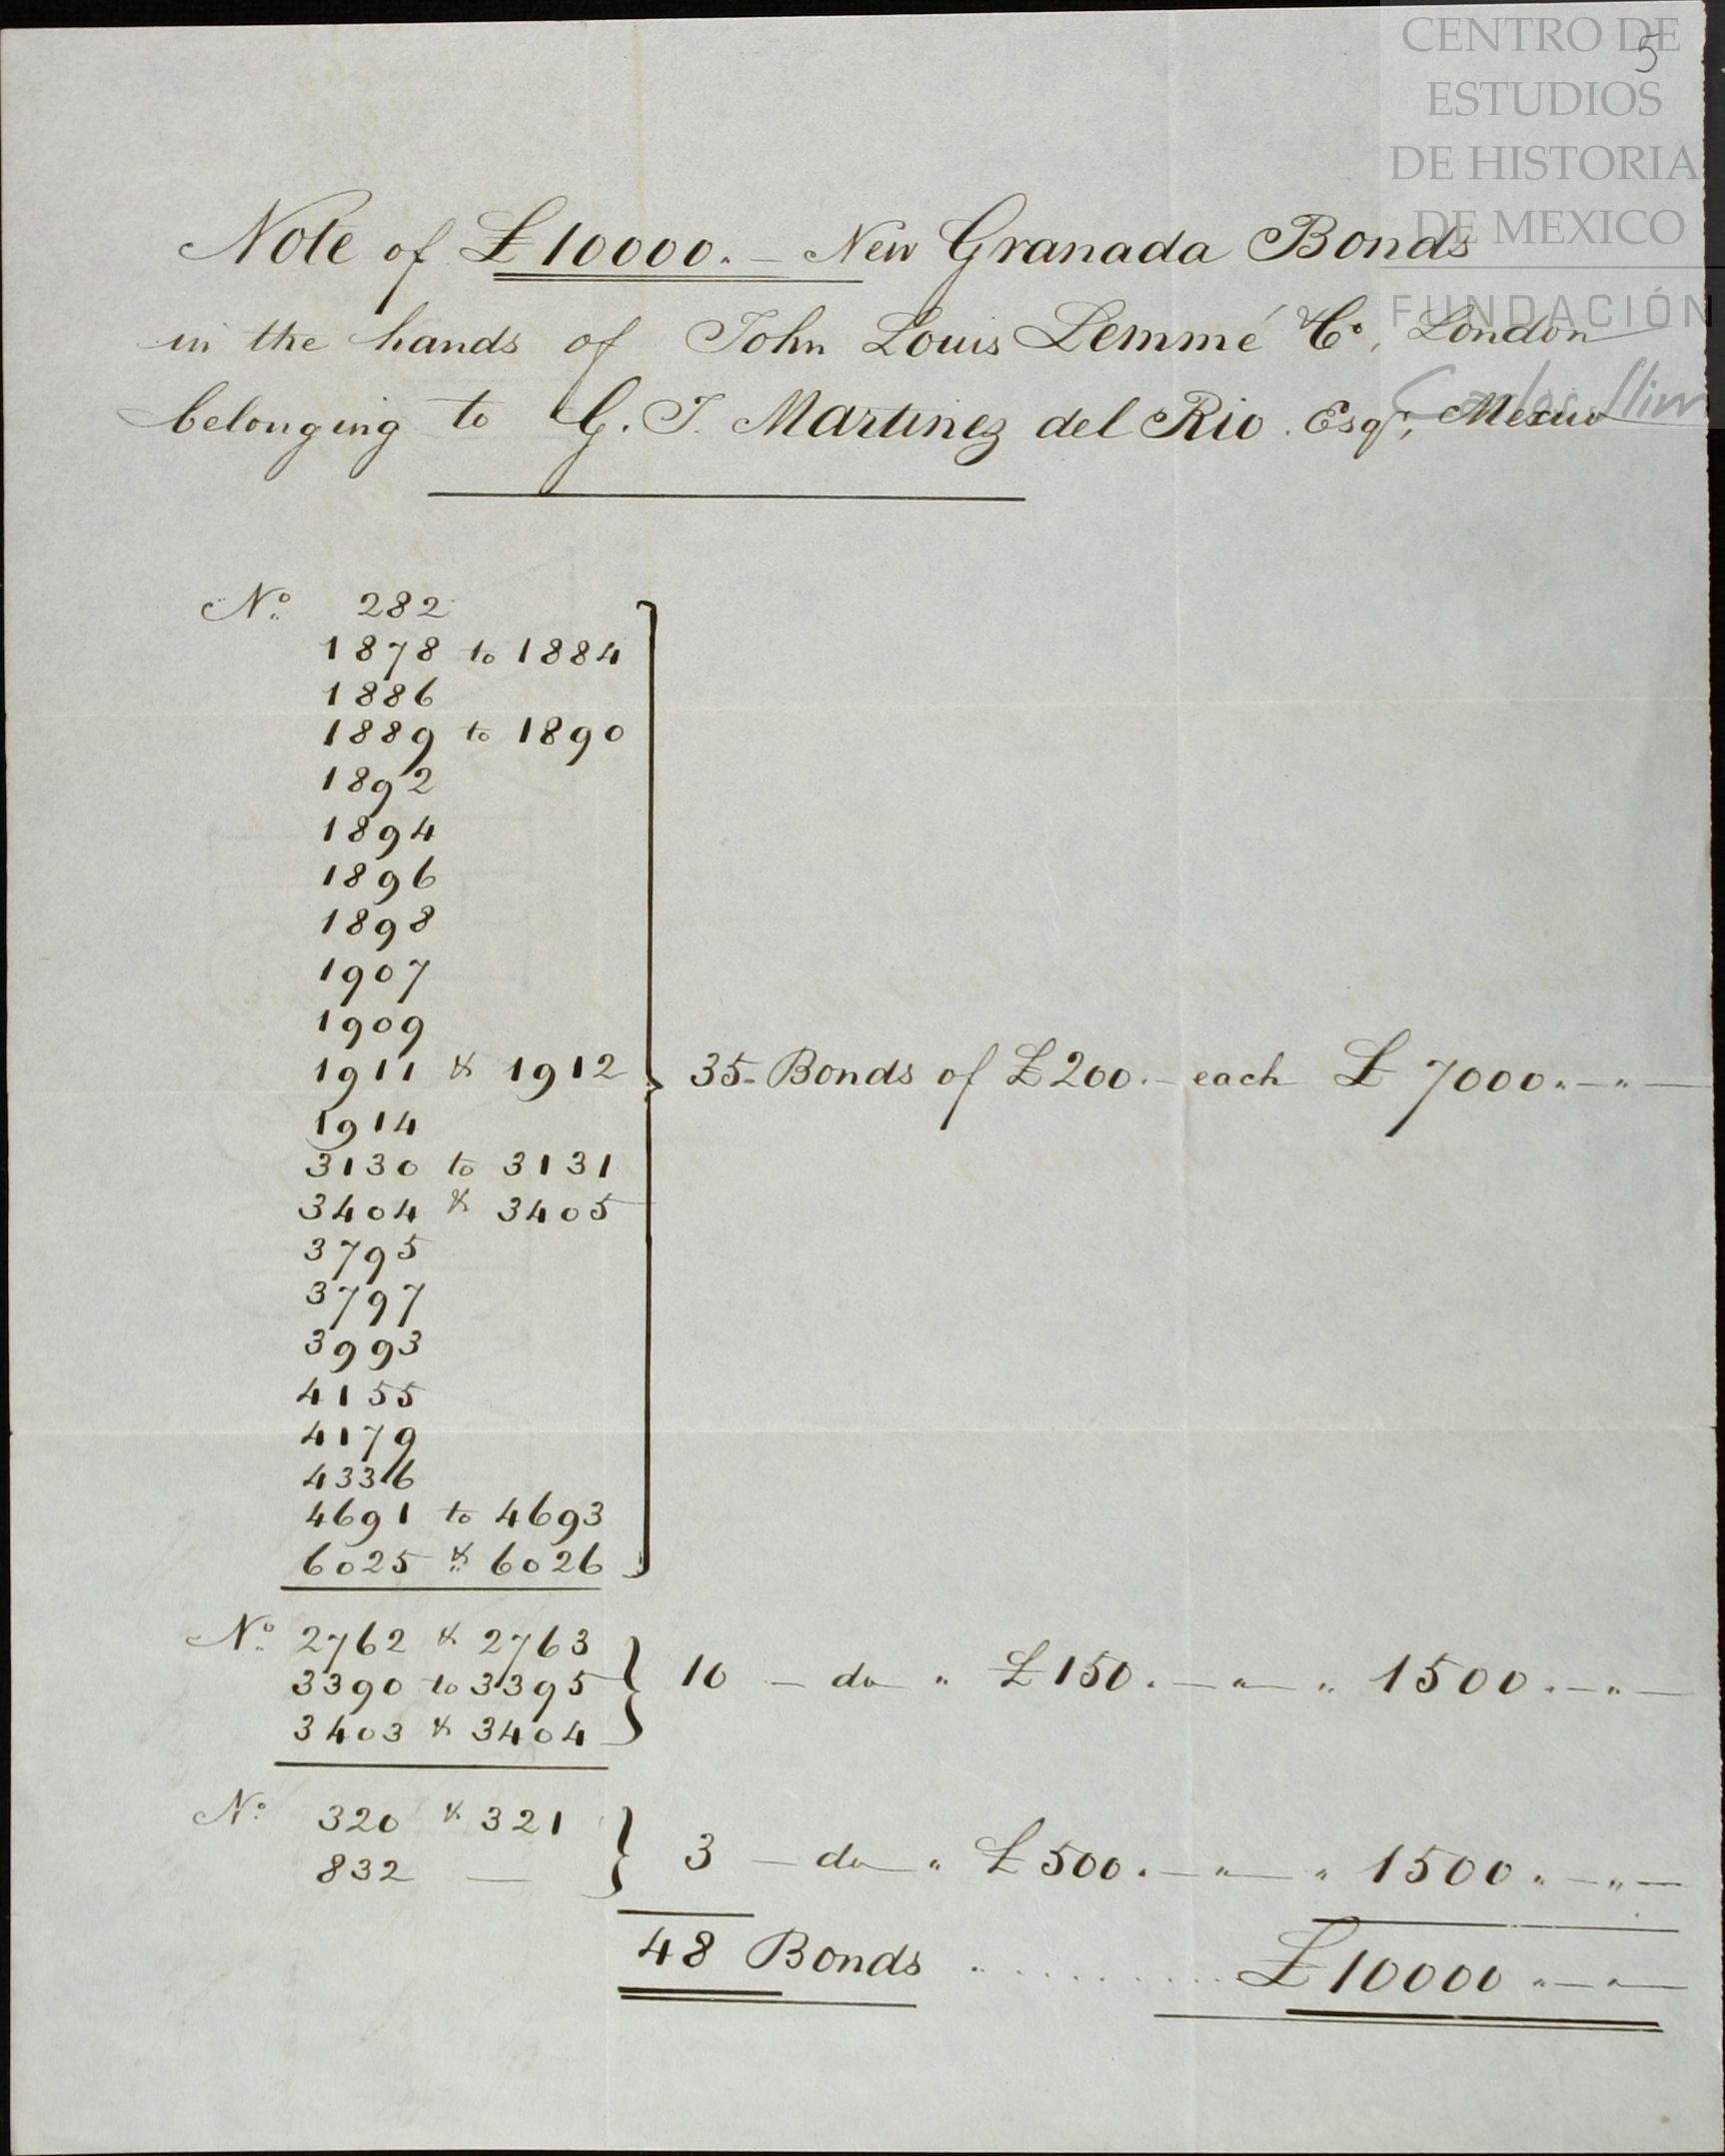 CENTRO DE
ESTUDIOS
DE HISTORIA
DE MEXICO
FUNDACIÓN
Carlos Slim
5
Note of £10000.— New Granada Bonds
in the hands of John Louis Lemmé & Co, London
belonging to G. J. Martinez del Rio. Esqr, Mexico
No. 282
1878 to 1884
1886
1889 to 1890
1892
1894
1896
1898
1907
1909
1911 & 1912 } 35 - Bonds of £200.— each £ 7000.—"—
1914
3130 to 3131
3404 & 3405
3795
3797
3993
4155
4179
4336
4691 to 4693
6025 & 6026
No. 2762 & 2763
3390 to 3395 } 10 — do " £150.—"— " 1500.—"—
3403 & 3404
No. 320 & 321
832 — } 3 — do " £500.—"— " 1500"—"—
48 Bonds .......... £10000"—"—